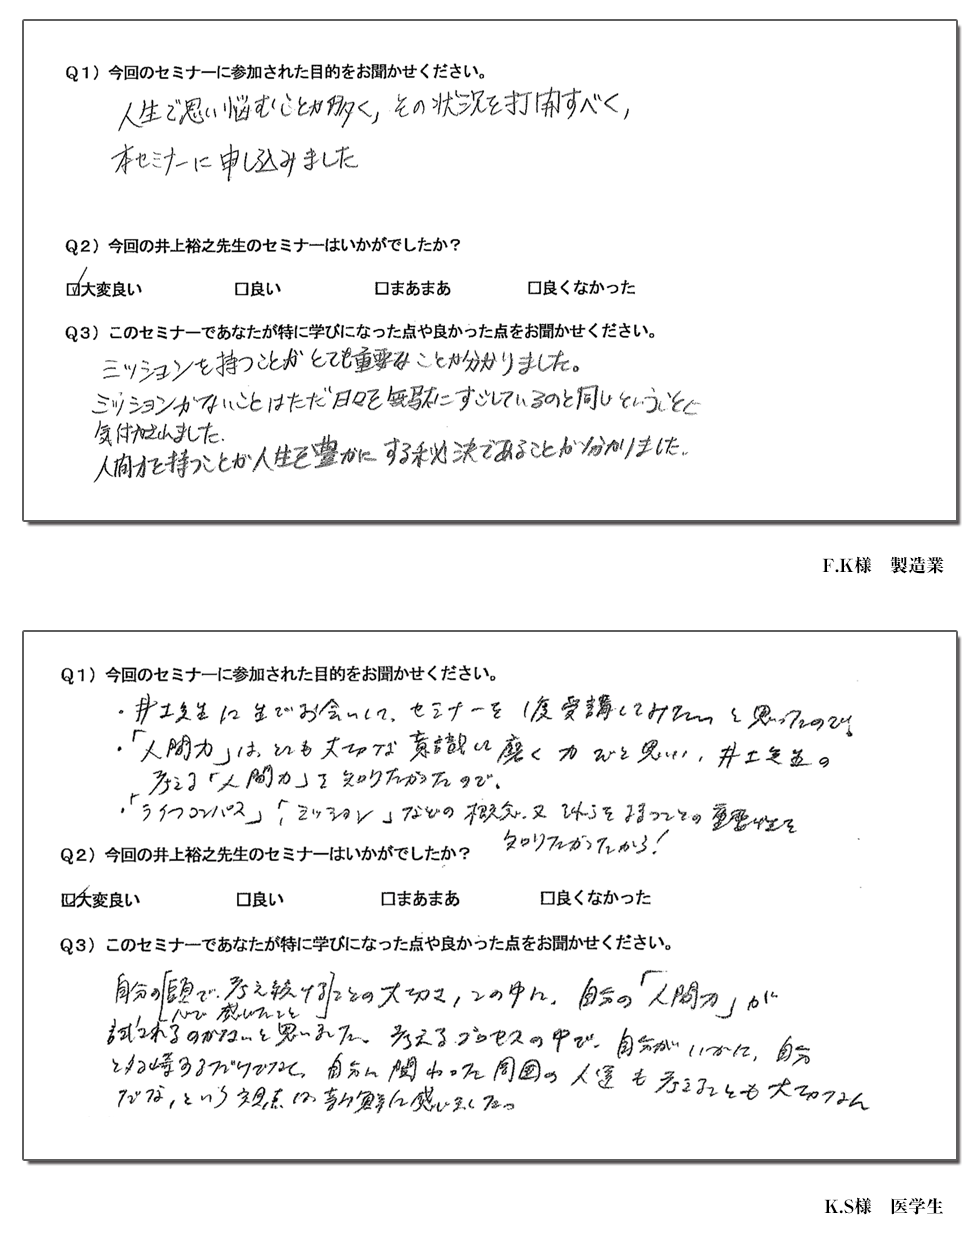 Q1）今回のセミナーに参加された目的をお聞かせください。
人生で思い悩むことが多く，その状況を打開すべく，
本セミナーに申し込みました
Q2）今回の井上裕之先生のセミナーはいかがでしたか？
☑大変良い　□良い　□まあまあ　□良くなかった
Q3）このセミナーであなたが特に学びになった点や良かった点をお聞かせください。
ミッションを持つことがとても重要なことが分かりました。
ミッションがないことはただ日々を無駄にすごしているのと同じということに
気付かされました.
人間力を持つことが人生を豊かにする秘決であることが分かりました.
F.K様　製造業
Q1）今回のセミナーに参加された目的をお聞かせください。
・井上先生に生でお会いして、セミナーを1度受講してみたいと思ったので。
・「人間力」は、とても大切な意識して磨く力だと思い、井上先生の
考える「人間力」を知りたかったので。
・「ライフコンパス」「ミッション」などの概念、又それらをまなぶことの重要性を
知りたかったから！
Q2）今回の井上裕之先生のセミナーはいかがでしたか？
☑大変良い　□良い　□まあまあ　□良くなかった
Q3）このセミナーであなたが特に学びになった点や良かった点をお聞かせください。
自分の[頭で、考え続ける]ことの大切さ，この中に、自分の「人間力」が
心で感じたこと
試されるのかなと思いました。考えるプロセスの中で、自分がいかに、自分
するだけでなく、自分に関わった周囲の人達も考えることも大切なん
だな，という視点は新鮮に感じました。
K.S様　医学生